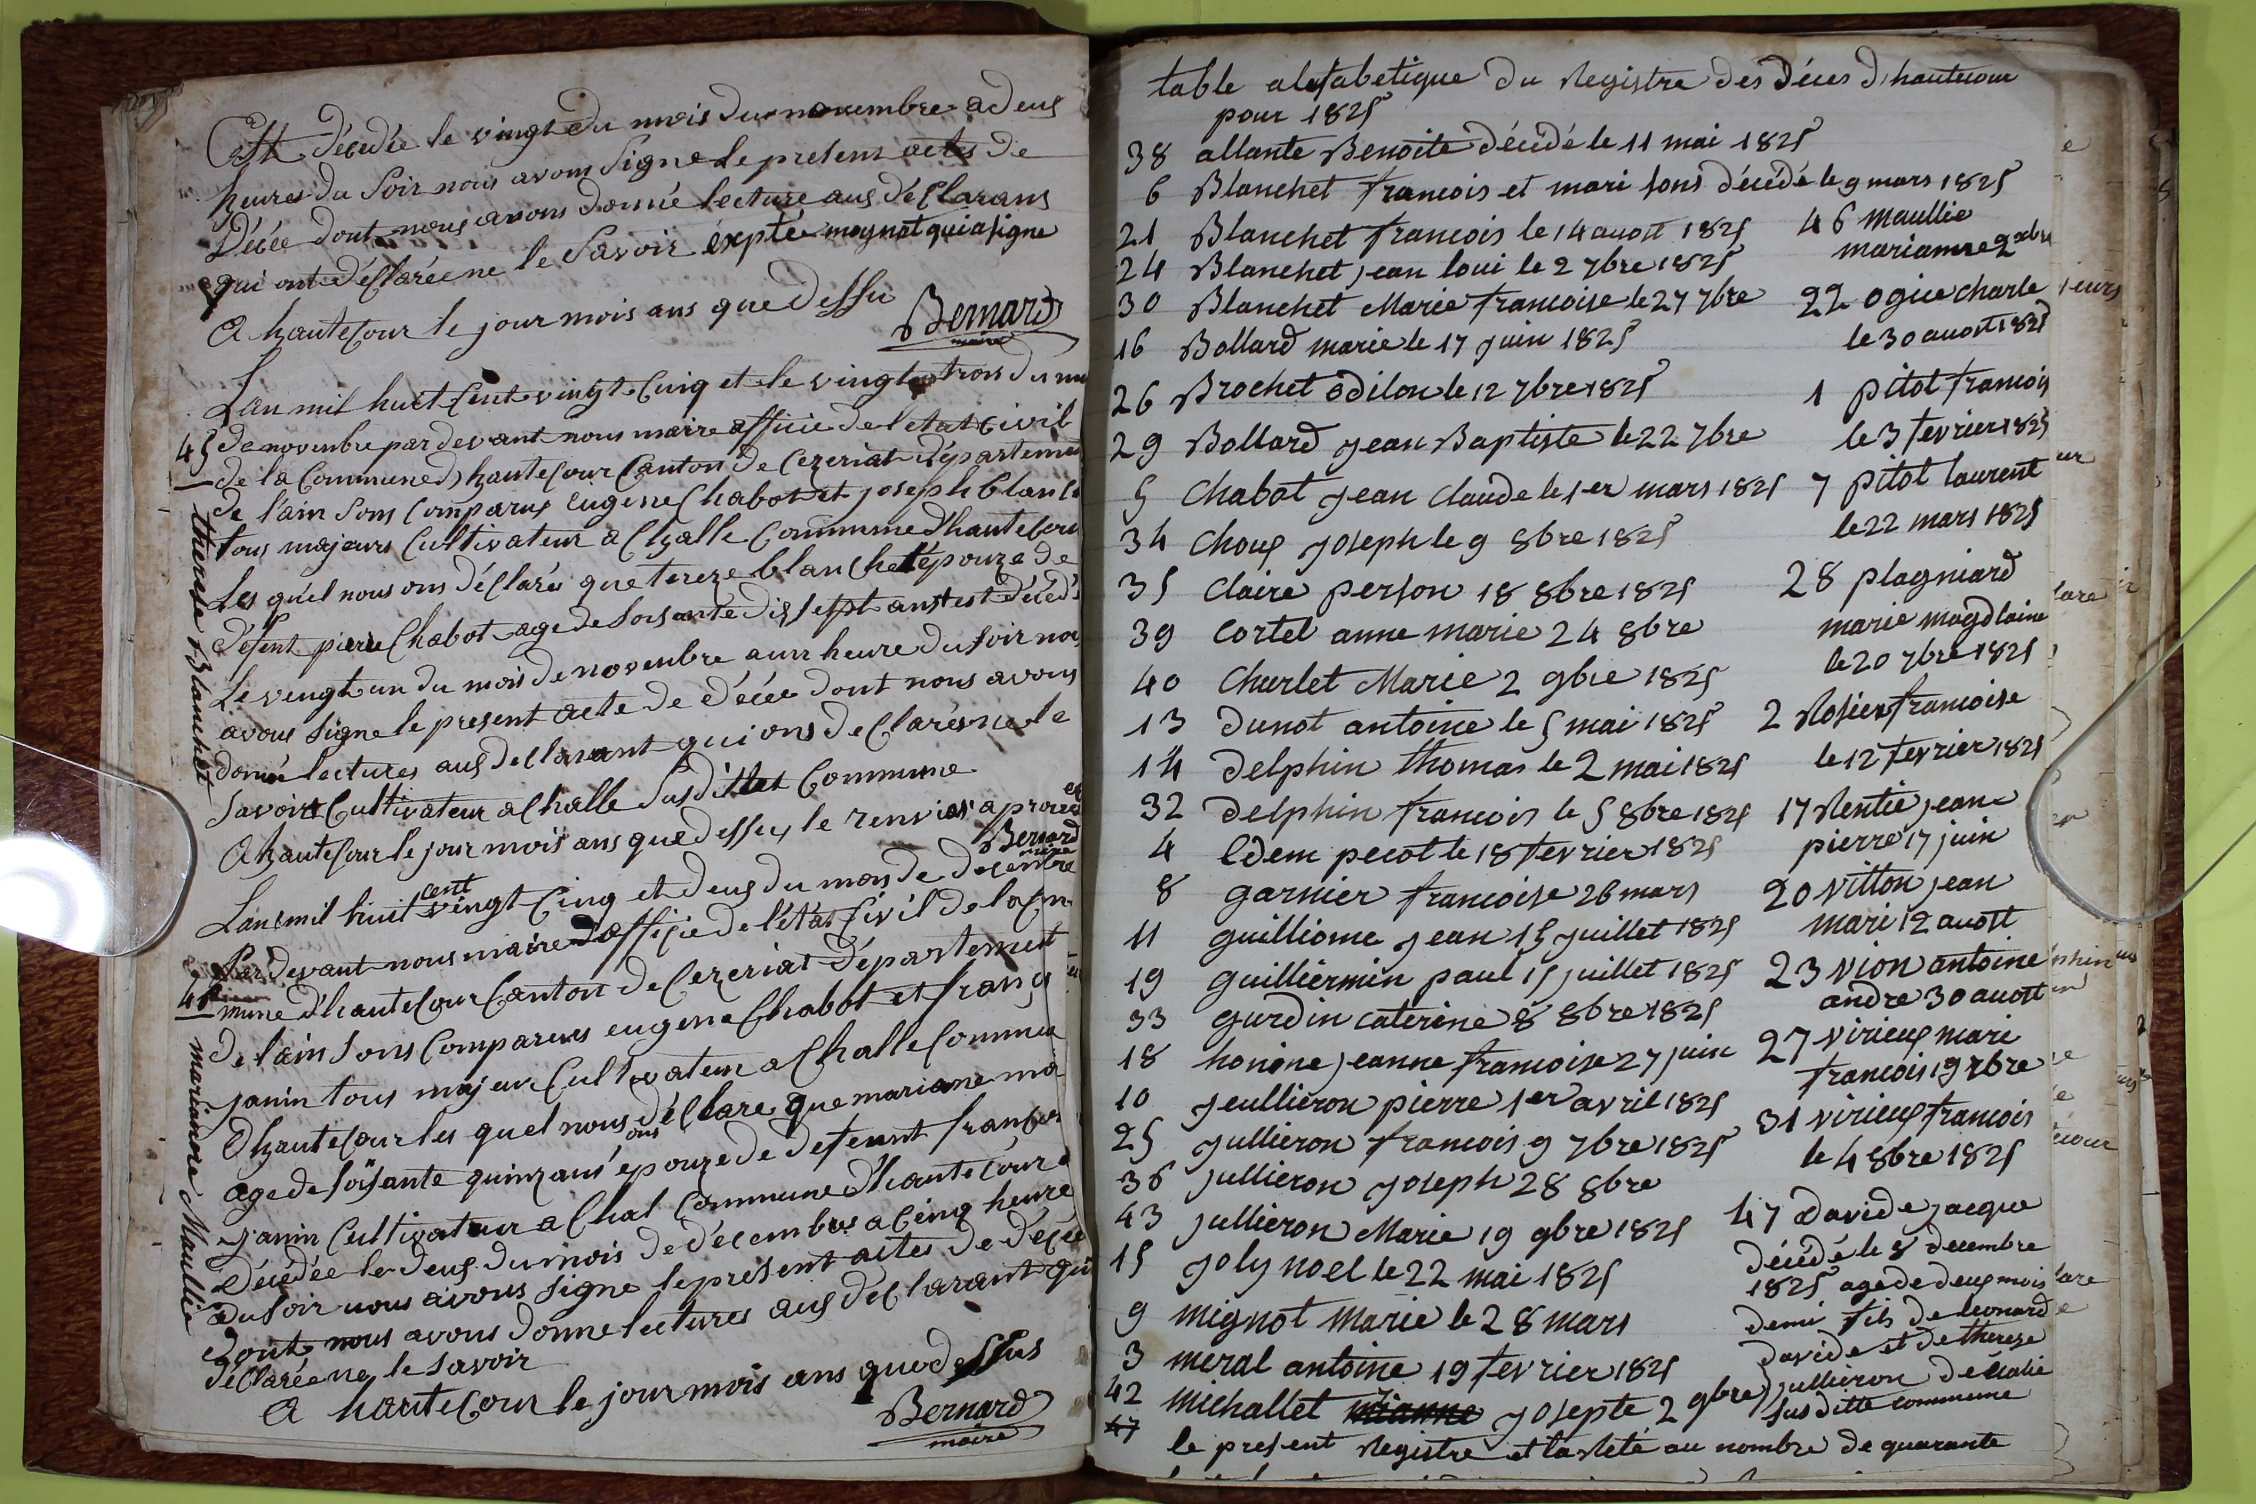 Est décédée le vingt du mois du novembre a deus
heures du soir nous avons signe le present actes de
Décée dont nous avons donné lecture aus déclarans
qui ont déclarée ne le savoir éxpté moynat qui a signe
A hautecour le jour mois ans que dessu
Bernard
maire
Lan mil huit cent vingt cinq et le vingt trois du
45 de novembre par devant nous maire officié de l'etat civil
de la commune d'hautecour canton de Cezeriat départeme
de l'ain sons comparus eugene Chabot et joseph blan
tous majeurs cultivateur a Challe commune d'hautecou
Les quel nous ons déclarés que tereze blanchet épouze de
défent pierre Chabot age de soisante dis sept ans est décédé
Le vengt un du mois de novembre a un heure du soir nou
avous signe le present acte de décée dont nous avons
donné lectures aus declarant qui ons declarés ne le
savoir cultivateur a Challe susditte commune
A hautecour le jour mois ans que dessus le renvies aprouée
Bernard
maire
therese Blanchet
Lan mil huit cent vingt cinq et deus du mois de decembre
Par devant nous maire officie de l'état civil de la com
46 mune d'hautecour canton de Cezeriat département
de lain sons comparus eugene Chabot et franç
janin tous majeur cultivateur a Challe commun
d'hautecour les quel nous ons déclare que mariane ma
age de soisante quinz ans épouze de defeunt françoi
janin cultivateur a Chal commune d'hautecour
Décédée le deus du mois de décembre a cinq heure
du soir nous avous signe le present actes de décée
Dont nous avons donne lectures aus déclarant qui
déclarée ne le savoir
A hautecour le jour mois ans que dessus
Bernard
maire
marianne Maullie
table alefabetique du Registre des Déces d'hautecour
pour 1825
38 allante Benoite décédé le 11 mai 1825
6 Blanchet francois et mari sons décédé le 9 mars 1825
21 Blanchet francois le 14 auost 1825
24 Blanchet jean loui le 2 7bre 1825
30 Blanchet Marie francoise le 27 7bre
16 Bollard marie le 17 juin 1825
26 Brochet odilon le 12 7bre 1825
29 Bollard jean Baptiste le 22 7bre
5 Chabot jean claude le 1er mars 1825
34 Chous joseph le 9 8bre 1825
35 Claire person 18 8bre 1825
39 Cortel anne marie 24 8bre
40 Churlet Marie 2 9bre 1825
13 dunot antoine le 5 mai 1825
14 delphin thomas le 2 mai 1825
32 delphin francois le 5 8bre 1825
4 Edem pecot le 18 fevrier 1825
8 garnier francoise 26 mars
11 guilliome jean 15 juillet 1825
19 guilliermin paul 15 juillet 1825
33 gurdin caterine 8 8bre 1825
18 honine jeanne francoise 27 juin
10 jeullieron pierre 1er avril 1825
25 jullieron francois 9 7bre 1825
36 jullieron joseph 28 8bre
43 jullieron Marie 19 9bre 1825
15 joly noel le 22 mai 1825
9 mignot marie le 28 mars
3 meral antoine 19 fevrier 1825
42 michallet josepte 2 9bre
47
le present Registre et tarreté au nombre de quarante
46 maullie
marianne 2 xbre
22 ogier charle
le 30 auost 1825
1 pitot francois
le 3 fevrier 1825
7 pitot laurent
le 22 mars 1825
28 plagniard
marie magdlaine
le 20 7bre 1825
2 Rosier francoise
le 12 fevrier 1825
17 Rentie jean
pierre 17 juin
20 vitton jean
mari 12 auost
23 vion antoine
andre 30 auost
27 virieus mari
francois 19 7bre
31 virieus francois
le 4 8bre 1825
47 david jacque
décédé le 8 decembre
1825 age de deus mois
demi fils de leonard
david et de therese
jullieron de
sus ditte commune